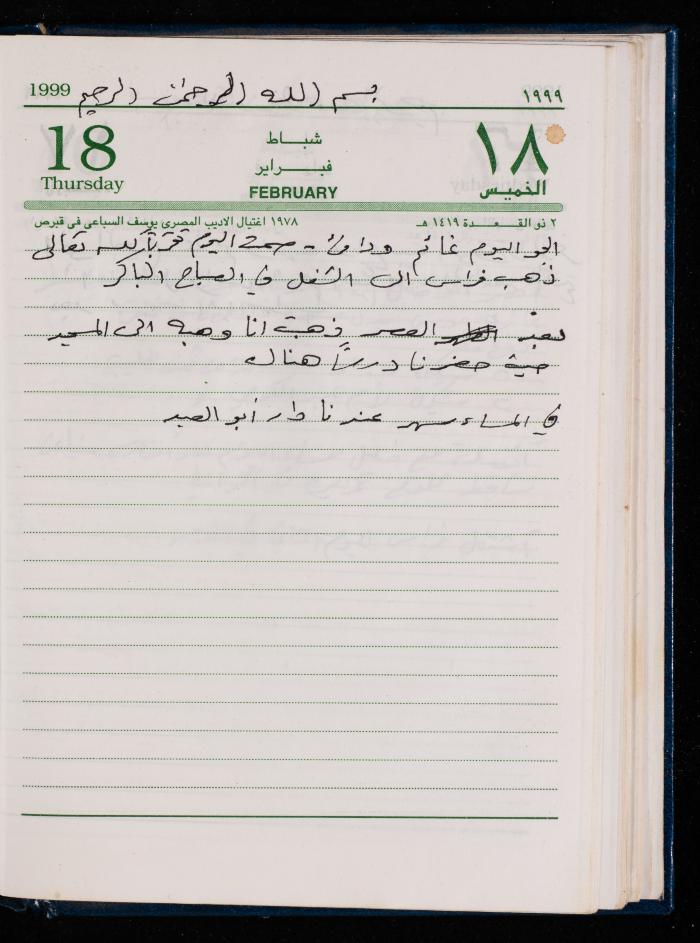 1999 بسم الله الرحمن الرحيم ١٩٩٩
18 شباط ١٨
Thursday فبراير الخميس
FEBRUARY
٢ ذو القعدة ١٤١٩ هـ ١٩٧٨ اغتيال الاديب المصرى يوسف السباعى فى قبرص
الجو اليوم غائم ودافئ - صمت اليوم تقرباً لله تعالى
ذهب فراس الى الشغل في الصباح الباكر
بعد العصر ذهبت انا وهبه الى المسجد
حيث حضرنا درساً هناك
في المساء سهر عندنا دار أبو العبد